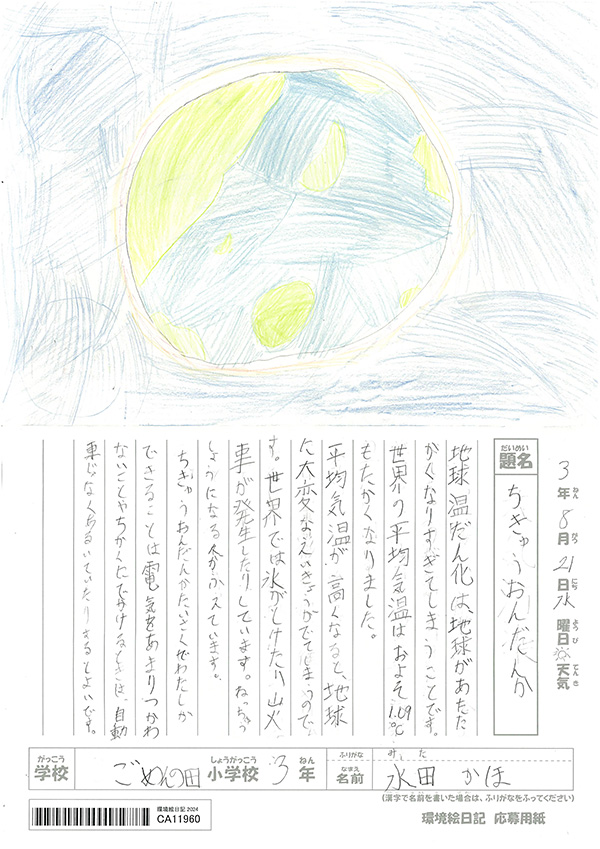 3年ねん 8月がつ 21日にち 水曜日ようび 天気てんき
題名だいめい ちきゅうおんだんか
地球温だん化は、地球があたた
かくなりすぎてしまうことです。
世界の平均気温はおよそ1.09℃
もたかくなりました。
平均気温が高くなると、地球
に大変なえいきょうがでてしまうので
す。世界では氷がとけたり、山火
事が発生したりしています。ねっちゅう
しょうになる人がふえています。
ちきゅうおんだんかたいさくでわたしが
できることは電気をあまりつかわ
ないことやちかくにでかけるときは、自動
車じゃなくあるいていたりするとよいです。
学校がっこう ごめんの田 小学校しょうがっこう 3年ねん
ふりがな みした
名前なまえ 水田 かほ
(漢字で名前を書いた場合は、ふりがなをふってください)
環境絵日記 2024
CA11960
環境絵日記 応募用紙